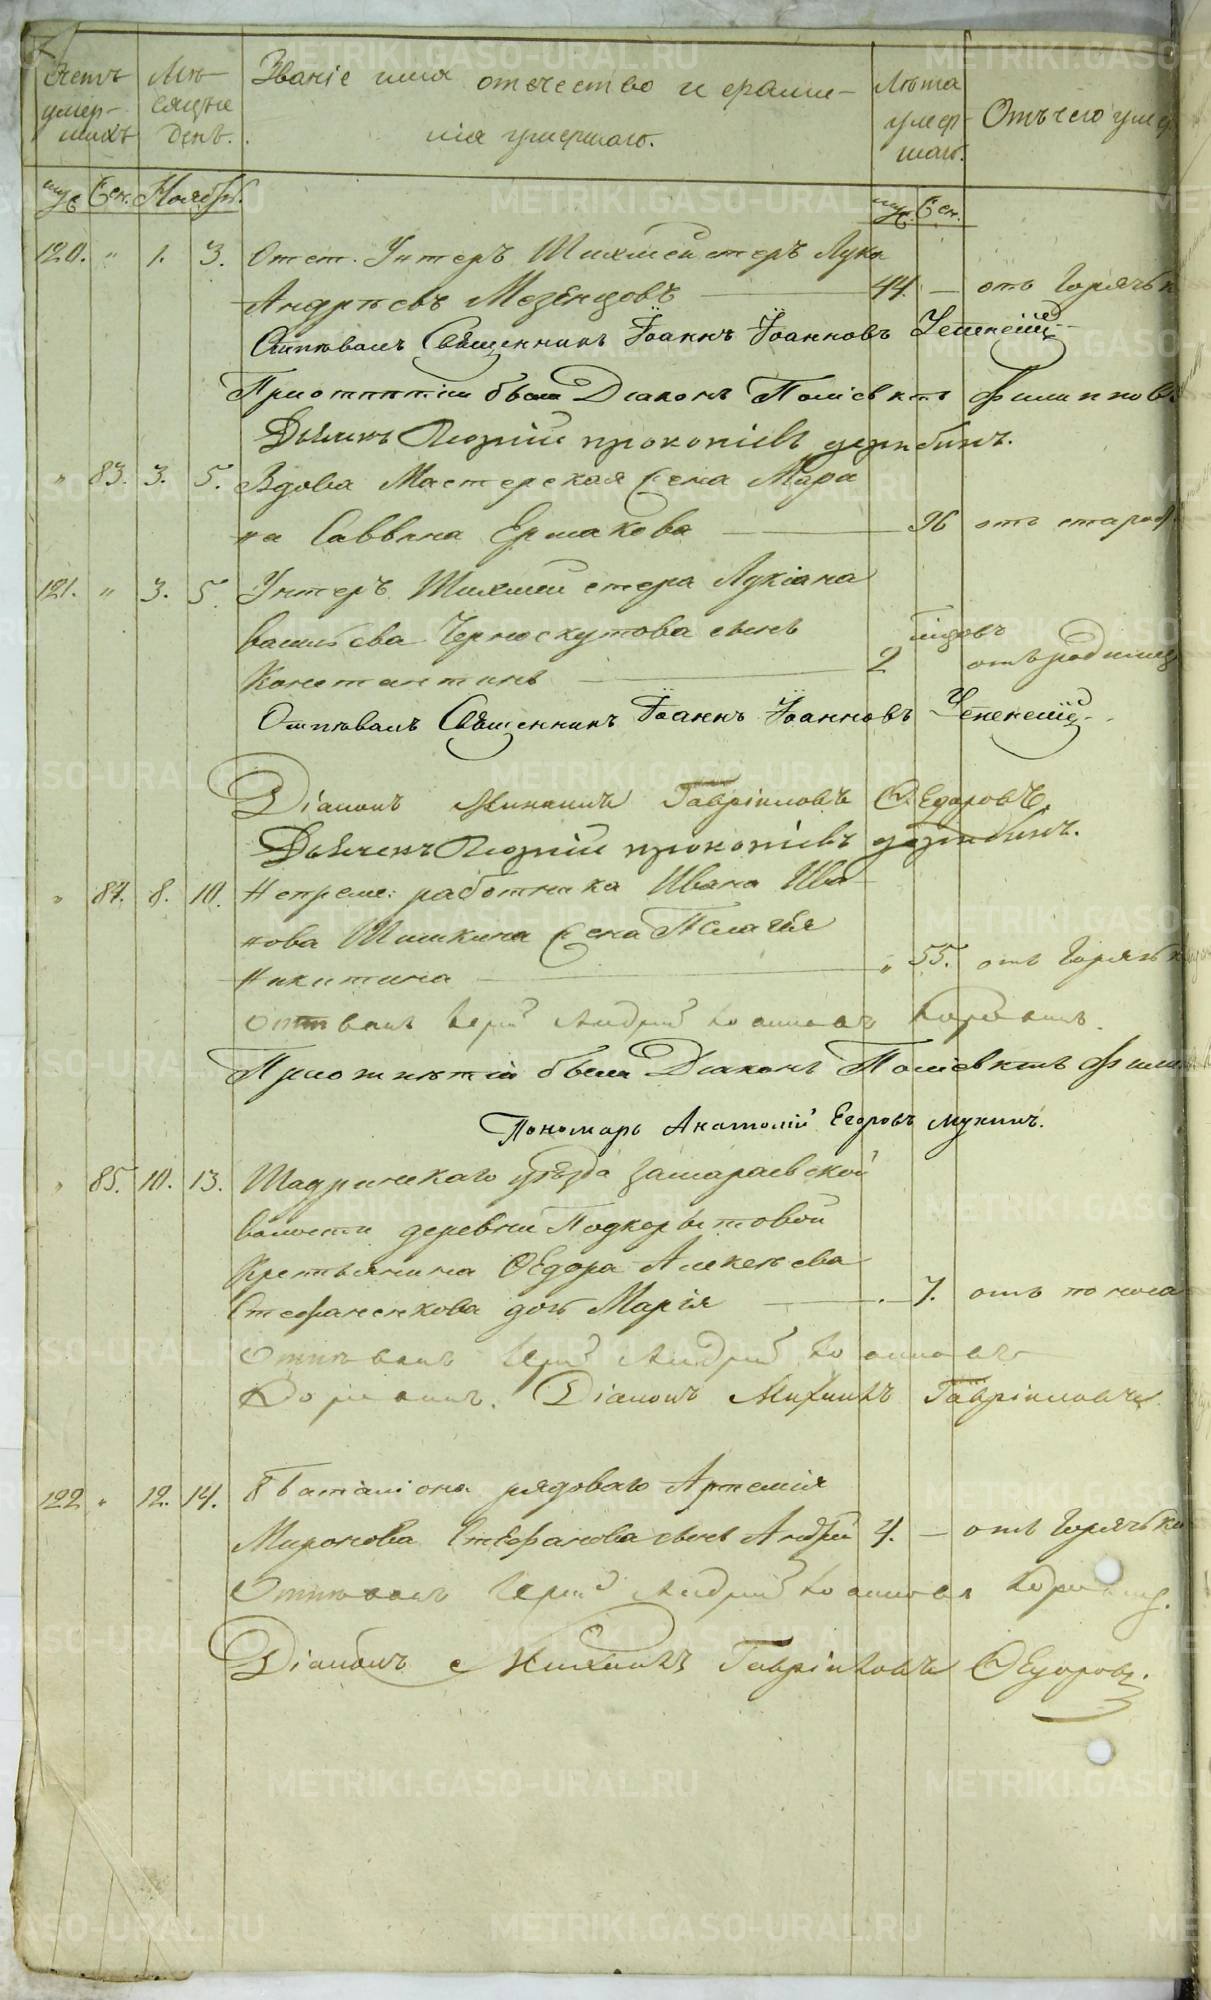 Счетъ умер- шихъ
Мѣ- сяцъ и День.
Званіе имя отечество и фами-
лія умершаго.
Лѣта умер- шаго.
Отъ чего умер
муж. Жен. Ноябрь.
муж. Жен.
120. " 1. 3. Отст. Унтеръ Шихтмейстеръ Лука
Андрѣевъ Мезенцовъ — 44. — отъ Горячк
Отпѣвалъ Священникъ Іоаннъ Іоанновъ
При отпѣтіи былъ Діаконъ Поліевктъ Филиппов
Дьячекъ прокопіевъ
" 83. 3. 5. Вдова Мастерская Жена Мара
на Саввина Ермакова — 96 отъ старос
121. " 3. 5. Унтеръ Шихтмейстера Лукіана
Васильева Черноскутова сынъ
Константинъ — 2 отъ родимц
Отпѣвалъ Священникъ Іоаннъ Іоанновъ
Діаконъ Михаилъ Гавріиловъ Ѳедоровъ.
Дьячекъ прокопіевъ
" 84. 8. 10. Непреме: работника Ивана Ива
нова Шишкина Жена Пелагія
Никитина — " 55. отъ Горячк
Отпѣвалъ Іерей Андрей Іоанновъ
При отпѣтіи былъ Діаконъ Поліевктъ Фили
Пономарь Анатолій Егоровъ Мухинъ.
" 85. 10. 13. Шадринскаго уѣзда Замараевской
волости деревни Подкорытовой
Крестьянина Ѳедора Алексѣева
Стефаненкова дочь Марія — . 7. отъ поноса
Отпѣвалъ Іерей Андрей Іоанновъ
Діаконъ Михаилъ Гавріиловъ
122 " 12. 14. 8 Баталіона рядоваго Артемія
Миронова Стефанова сынъ Андрей 4. — отъ Горячки
Отпѣвалъ Іерей Андрей Іоанновъ
Діаконъ Михаилъ Гавріиловъ Ѳедоровъ.
METRIKI.GASO-URAL.RU